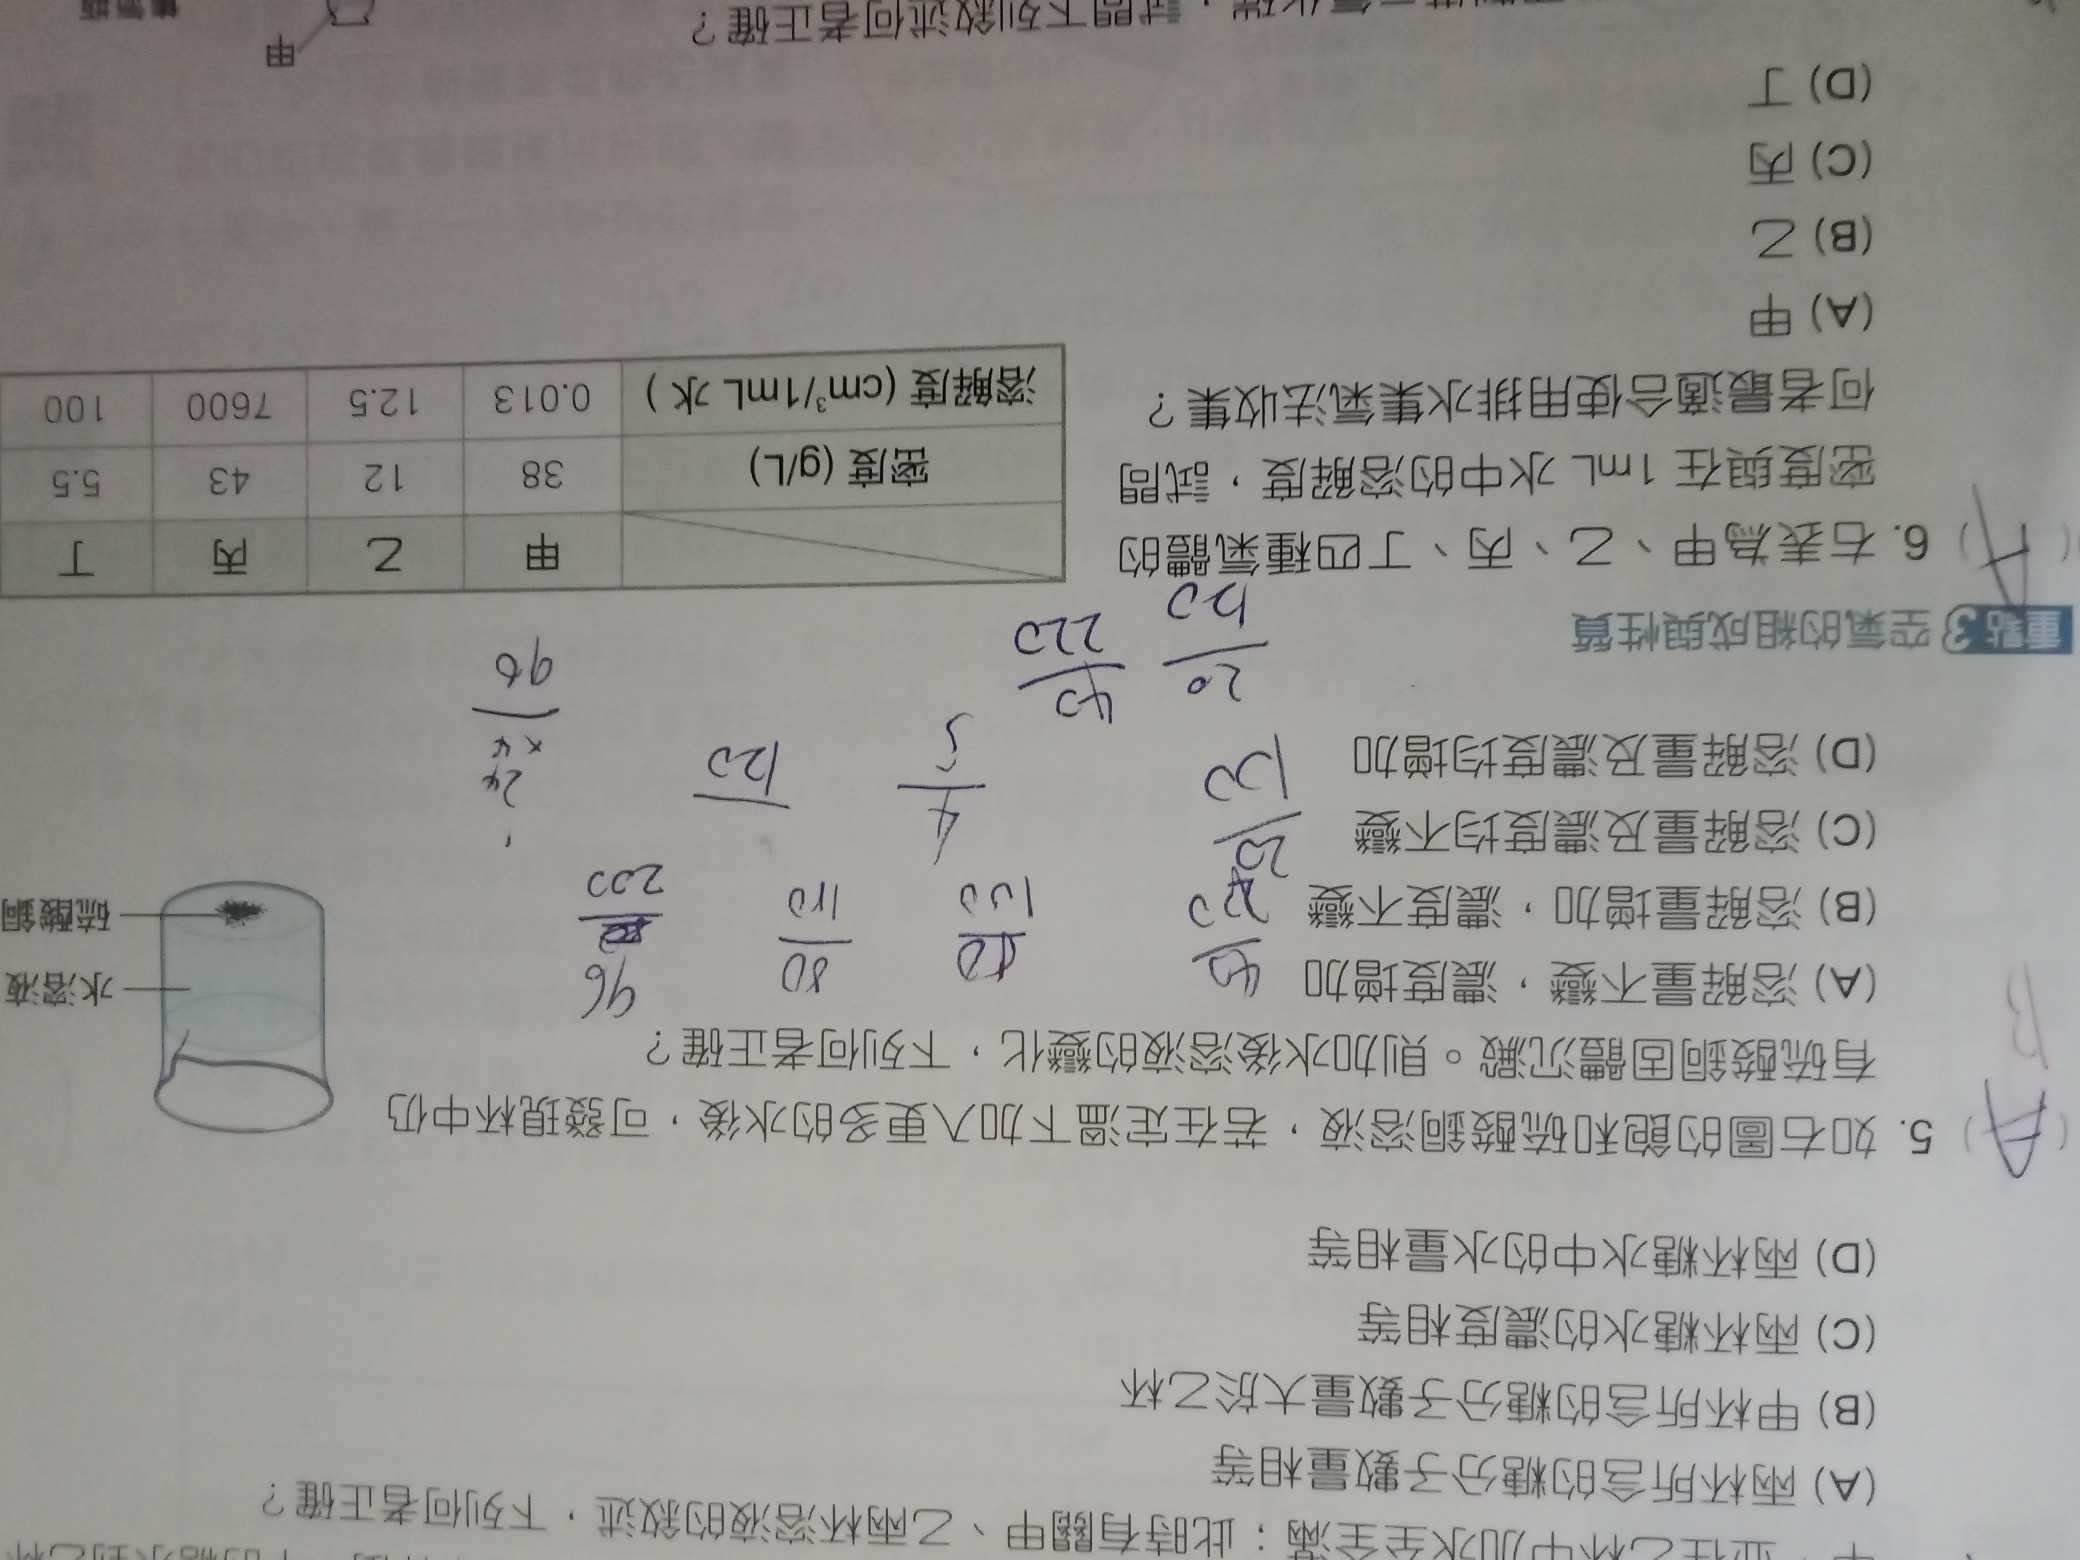 ，並在乙杯中加水至全滿；此時有關甲、乙兩杯溶液的敘述，下列何者正確？
(A) 兩杯所含的糖分子數量相等
(B) 甲杯所含的糖分子數量大於乙杯
(C) 兩杯糖水的濃度相等
(D) 兩杯糖水中的水量相等
(A) 5. 如右圖的飽和硫酸銅溶液，若在定溫下加入更多的水後，可發現杯中仍
B
有硫酸銅固體沉澱。則加水後溶液的變化，下列何者正確？
(A) 溶解量不變，濃度增加
(B) 溶解量增加，濃度不變
(C) 溶解量及濃度均不變
(D) 溶解量及濃度均增加
水溶液
硫酸銅
40
80
96
100
200
20
4
5
120
24
×4
96
20
120
40
220
重點3 空氣的組成與性質
(A) 6. 右表為甲、乙、丙、丁四種氣體的
密度與在 1mL 水中的溶解度，試問
何者最適合使用排水集氣法收集？
甲 乙 丙 丁
密度 (g/L) 38 12 43 5.5
溶解度 (cm³/1mL 水) 0.013 12.5 7600 100
(A) 甲
(B) 乙
(C) 丙
(D) 丁
甲
，試問下列敘述何者正確？